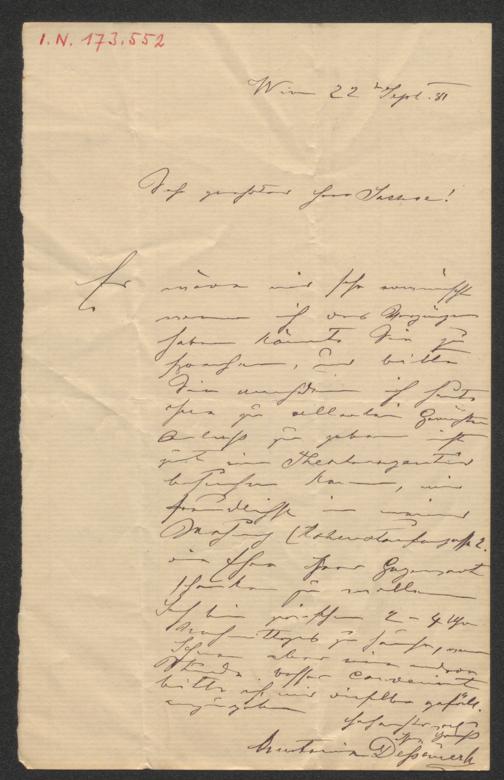 I.N. 173.552
Wien 22 Sept. 81
Sehr geehrter Herr
Es wäre mir sehr erwünscht
wenn ich das Vergnügen
haben könnte Sie zu
sprechen, und bitte
Sie ich
zu allerlei
Anlass zu geben
im Theateragentur
besuchen kann, mir
freundlichst in meiner
Wohnung (Hohenstaufengasse 2.
die Ehre Ihrer Gegenwart
schenken zu wollen
Ich bin zwischen 2-4 Uhr
Nachmittags zu Hause, wenn
Ihnen aber eine andere
Stunde besser convenirt
bitte ich mir dieselbe gefäll.
anzugeben
Hochachtungsvoll
Antonia